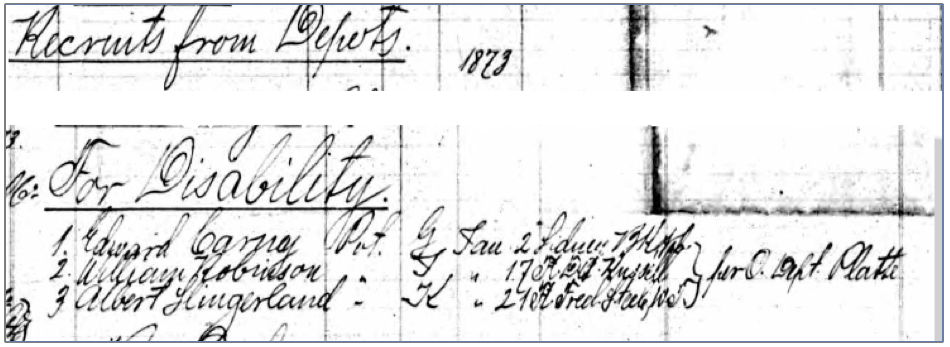 Recruits from Depots.
1873
For Disability.
1. Edward Carney Pvt. G Jan 2 Sidney Bks
2. William Robinson " " 17 Ft. Russell } per O. Dept. Platte
3 Albert Slingerland " K " 21 Ft. Fred Steele